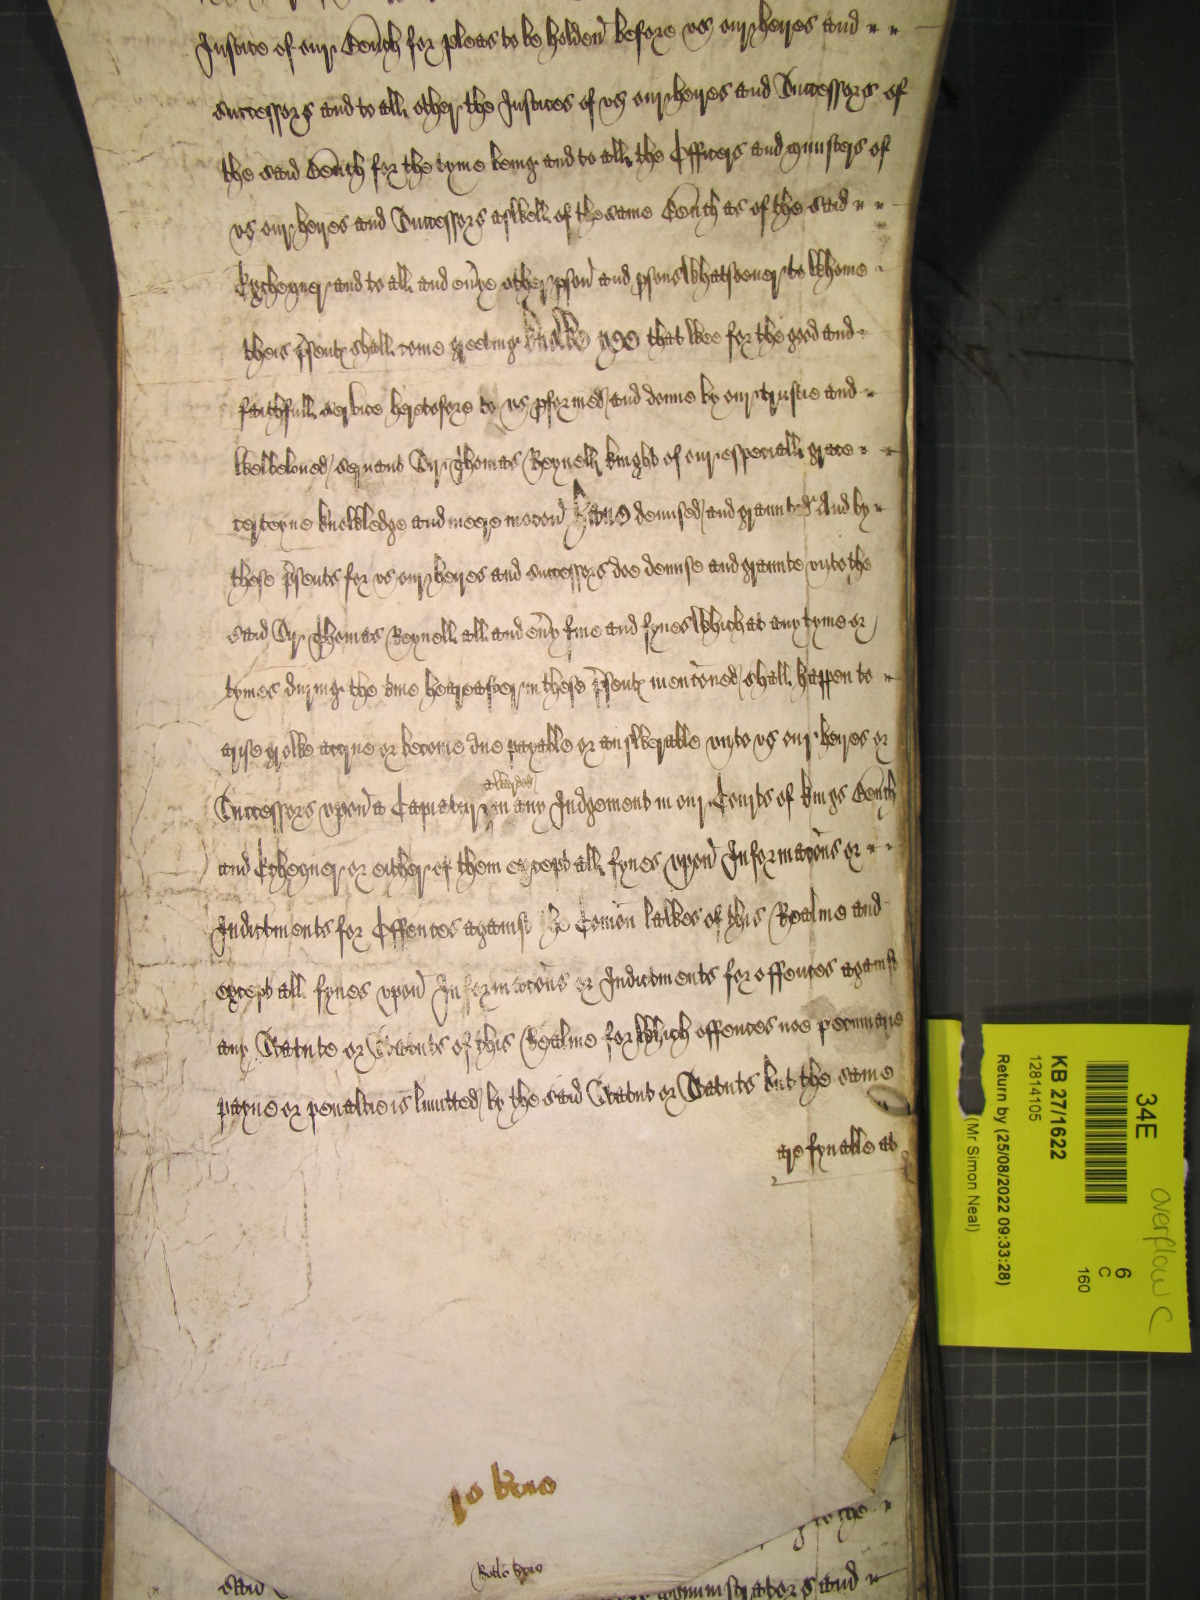 Justice of our Bench for pleas to be holden before us our heires and
successors and to all other the Justices of us our heires and Successors of
the said Bench for the tyme being and to all the Officers and mynisters of
us our heires and Successors aswell of the same Bench as of the said
Exchequer and to all and every other pson and psons whatsoever to whome
theis psents shall come greeting knowe yee that wee for the good and
faithfull service heretofore to us pformed and donne by our trustie and
welbeloved servant Sir Thomas Reynell knight of our especiall grace
certeyne knowledge and meere mocon have demised and graunted And by
these psents for us our heires and successors doe demise and graunte unto the
said Sir Thomas Reynell all and evy fine and fynes which at any tyme or
tymes during the tme hereafter in these psents menconed shall happen to
arise growe accrue or become due payable or answerable unto us our heires or
awarded
Successors upon a Capiatur in any Judgement in our Courts of kings Bench
and Exchequer or either of them except all fynes upon Informacons or
Indictments for Offences against the Comon lawes of this Realme and
except all fynes upon Informacons or Indictments for offences against
any Statute or Statuts of this Realme for which offences noe pecuniarie
payne or penaltie is limitted by the said Statut or Statuts but the same
are fynable at
Ro
said
administrators and
34E
overflow C
KB 27/1622
12814105
6
C
160
Return by (25/08/2022 09:33:28)
(Mr Simon Neal)